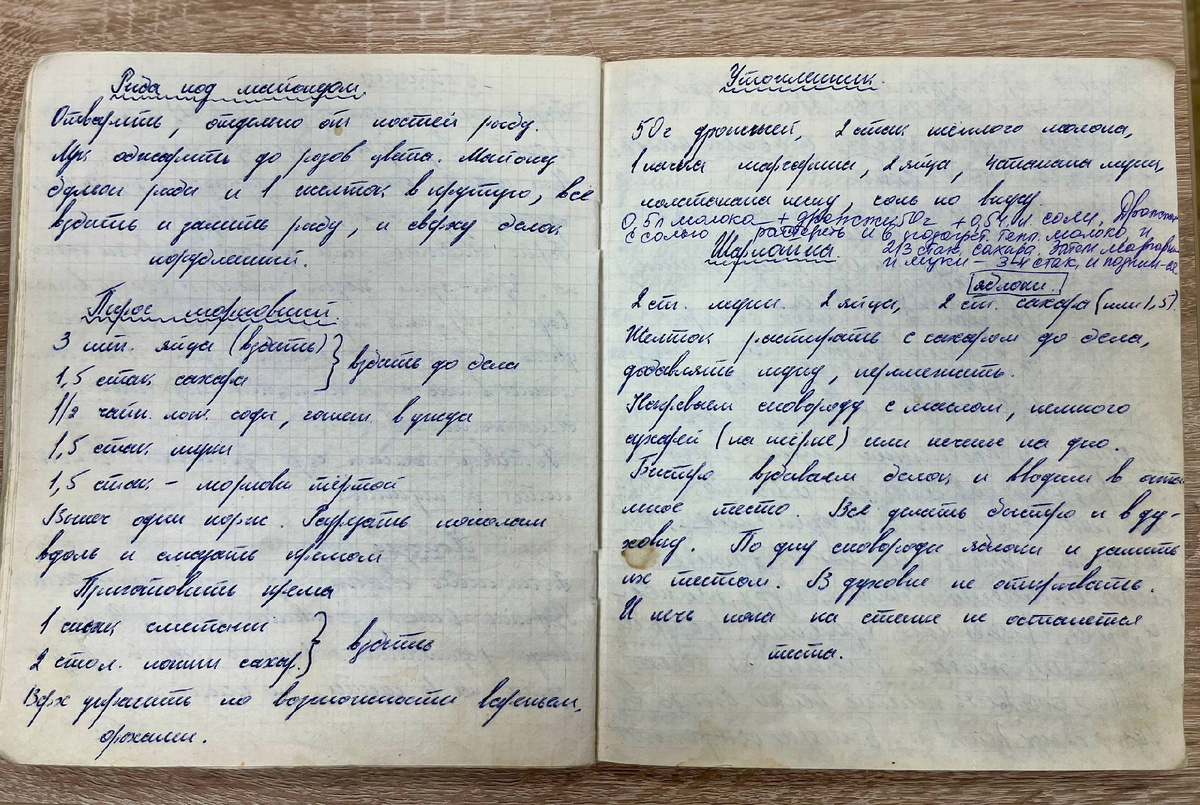 Рыба под майонезом.
Отварить, отделить от костей рыбу.
Лук обжарить до розов цвета. Майонез
бульон рыбы и 1 желток вкрутую, всё
взбить и залить рыбу, и сверху белок
порубленный.
Пирог морковный.
3 шт. яйца (взбить)
1,5 стак сахара } взбить до бела
1/2 чайн. лож. соды, гашен. в уксусе
1,5 стак муки
1,5 стак – моркови тёртой
Выпеч один корж. Разрезать пополам
вдоль и смазать кремом
Приготовить крема
1 стак сметаны
2 стол. ложки сахар. } взбить
Верх украсить по возможности вареньем,
орехами.
Утопленник.
50г дрожжей, 2 стак тёплого молока,
1 пачка маргарина, 2 яйца, 4 стакана муки,
полстакана песку, соль по вкусу.
0,5л молока + дрожжи 50г + 0,5 ч.л соли, Дрожжи
с солью растереть и в подогрет. тепл. молоко и
2/3 стак. сахара. Затем маргарин
и муки – 3-4 стак, и
Шарлотка.
яблоки.
2 ст. муки. 2 яйца, 2 ст. сахара (или 1,5)
Желток растирать с сахаром до бела,
добавлять муку, перемешать.
Нагреваем сковороду с маслом, немного
сухарей (на тёрке) или печенье на дно.
Быстро взбиваем белок и вводим в оста
льное тесто. Всё делать быстро и в ду-
ховку. По дну сковороды яблоки и залить
их тестом. В духовке не открывать.
И печь пока на спичке не останется
теста.